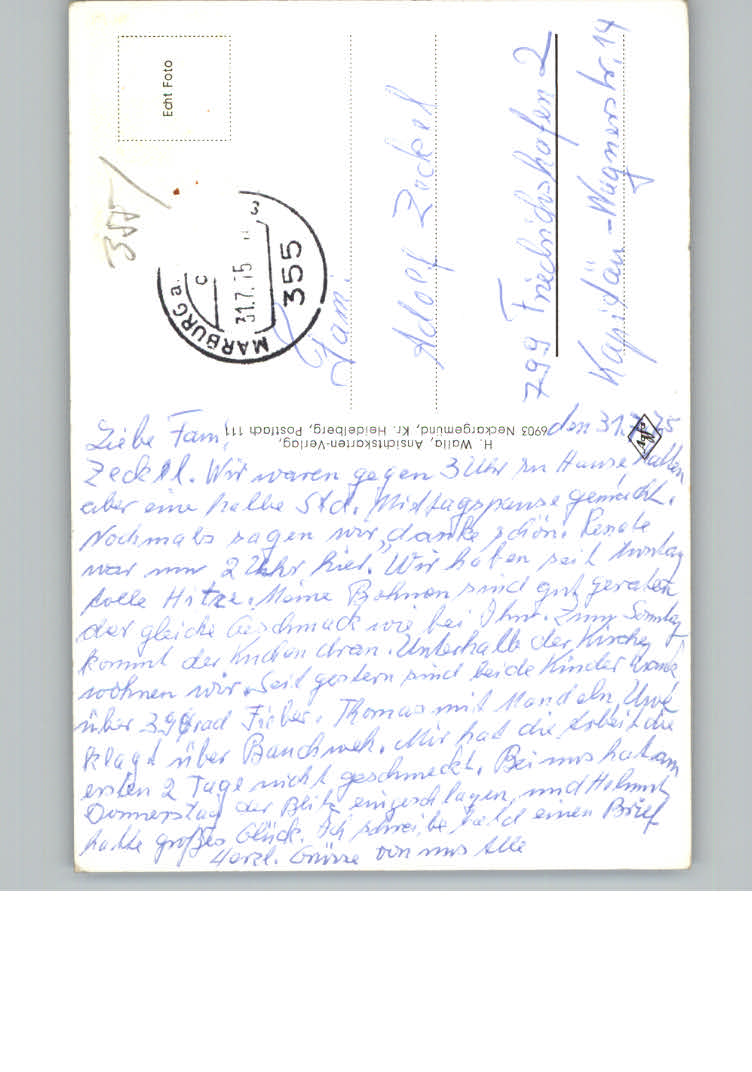 Echt Foto
355
MARBURG a.
c
31.7.75
3
355
Fam.
Adolf Zeckel
799 Friedrichshafen 2
Kapitän-Wagnerstr. 14
H. Walla, Ansichtskarten-Verlag,
6903 Neckargemünd, Kr. Heidelberg, Postfach 111
Agfa
den 31.7.75
Liebe Fam.
Zeckel. Wir waren gegen 3 Uhr zu Hause hatten
aber eine halbe Std. Mittagspause gemacht.
Nochmals sagen wir "danke schön. Renate
war um 2 Uhr hier. Wir haben seit
tolle Hitze. Meine Bohnen sind gut geraten
der gleiche Geschmack wie bei Ihnen. Zum Sonntag
kommt der Kuchen dran. Unterhalb der Kirche
wohnen wir. Seit gestern sind beide Kinder krank
über 39 Grad Fieber. Thomas mit Mandeln, Uwe
klagt über Bauchweh. Mir hat die Arbeit die
ersten 2 Tage nicht geschmeckt. Bei uns hat am
Donnerstag der Blitz eingeschlagen, und Helmut
hatte großes Glück. Ich schreibe bald einen Brief
Herzl. Grüsse von uns Alle